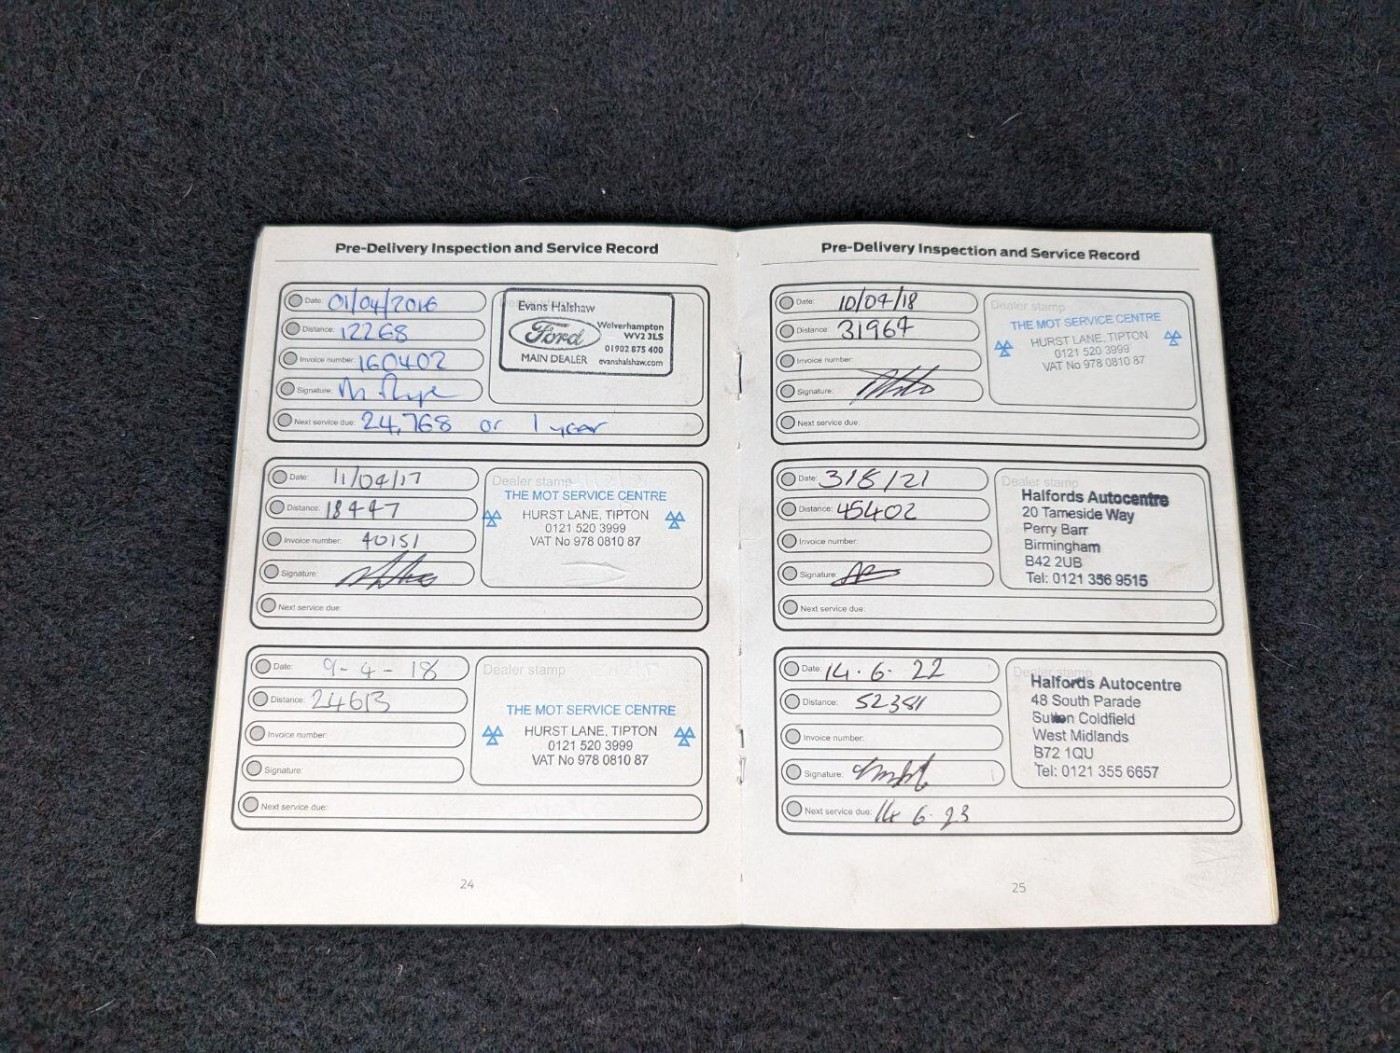 Pre-Delivery Inspection and Service Record
Date: 01/04/2016
Distance: 12268
Invoice number: 160402
Signature:
Next service due: 24,768 or 1 year
Evans Halshaw
Ford
MAIN DEALER
Wolverhampton
WV2 3LS
01902 875 400
evanshalshaw.com
Date: 11/04/17
Distance: 18447
Invoice number: 40151
Signature:
Next service due:
Dealer stamp
THE MOT SERVICE CENTRE
HURST LANE, TIPTON
0121 520 3999
VAT No 978 0810 87
Date: 9-4-18
Distance: 24613
Invoice number:
Signature:
Next service due:
Dealer stamp
THE MOT SERVICE CENTRE
HURST LANE, TIPTON
0121 520 3999
VAT No 978 0810 87
24
Pre-Delivery Inspection and Service Record
Date:
Distance: 31964
Invoice number:
Signature:
Next service due:
Dealer stamp
THE MOT SERVICE CENTRE
HURST LANE, TIPTON
0121 520 3999
VAT No 978 0810 87
Date: 3/8/21
Distance: 45402
Invoice number:
Signature:
Next service due:
Dealer stamp
Halfords Autocentre
20 Tameside Way
Perry Barr
Birmingham
B42 2UB
Tel: 0121 356 9515
Date: 14.6.22
Distance:
Invoice number:
Signature:
Next service due: 14 6.23
Dealer stamp
Halfords Autocentre
48 South Parade
Sutton Coldfield
West Midlands
B72 1QU
Tel: 0121 355 6657
25